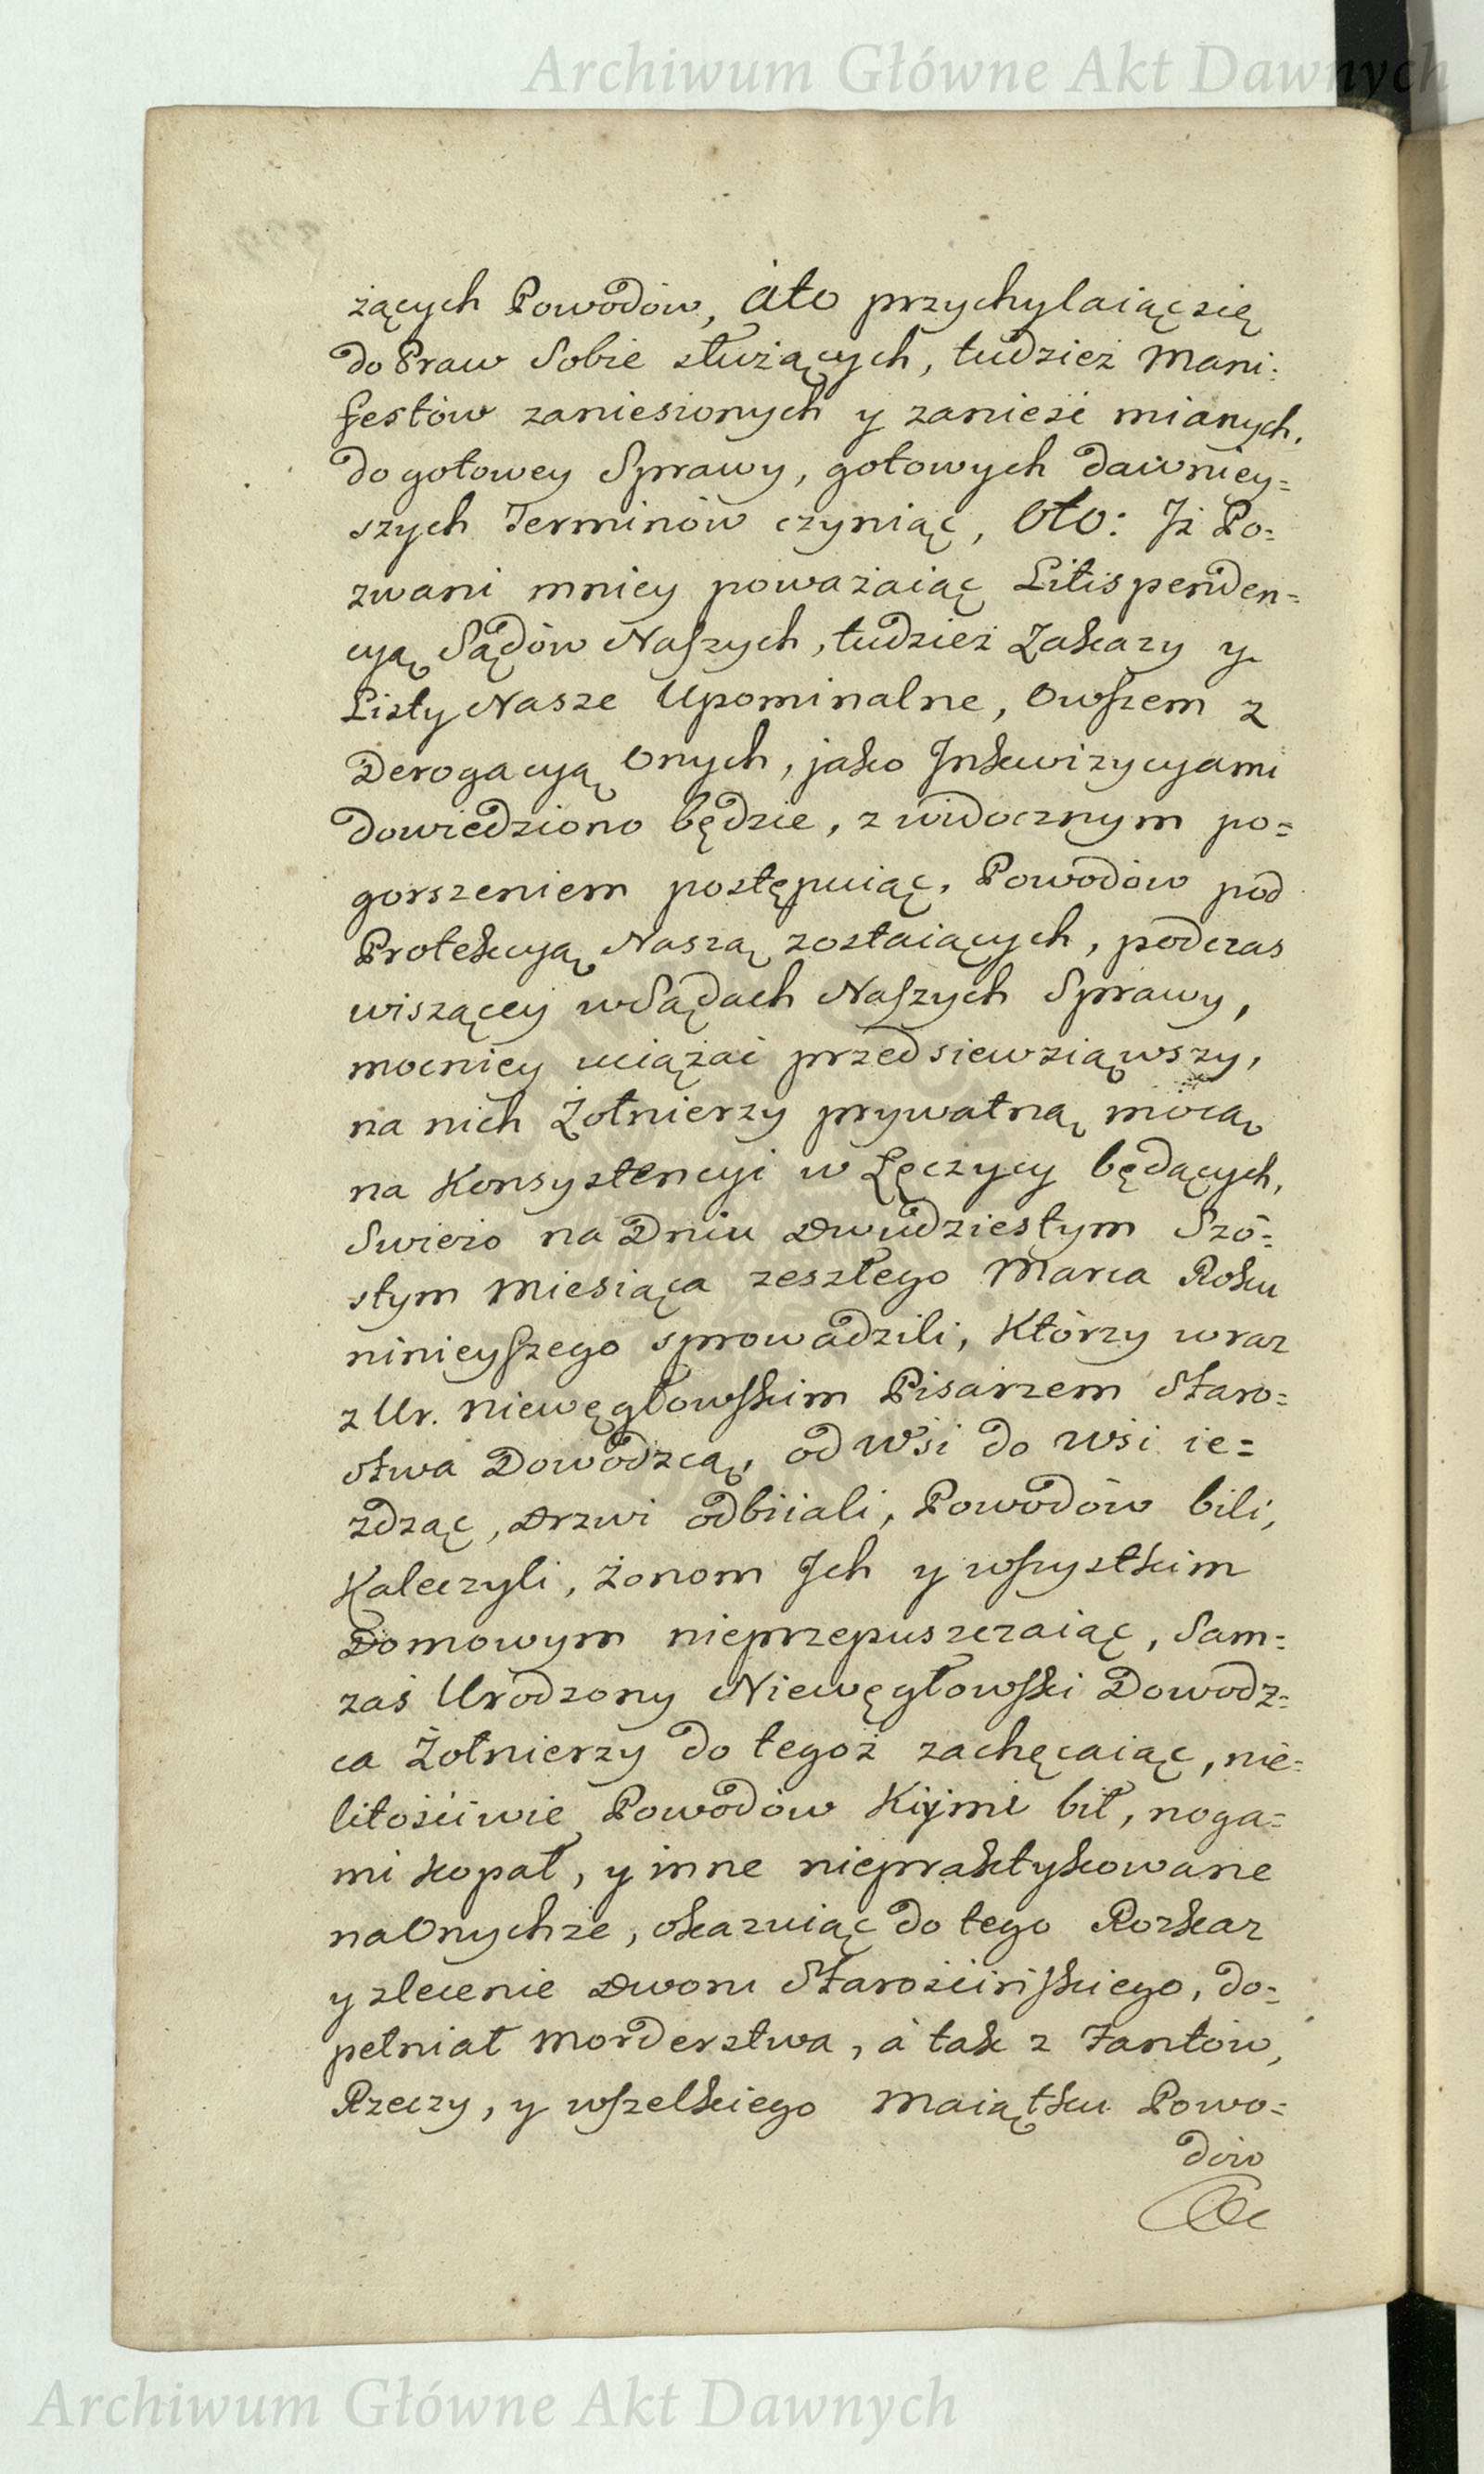 Archiwum Główne Akt Dawnych
żących Powodów, áto przychylaiąc się
do Praw Sobie służących, tudzież Mani:
festów zaniesionych y zanieść mianych,
do gotowey Sprawy, gotowych dawniey=
szych Terminów czyniąc, Oto: Jż Po=
zwani mniey poważaiąc Litispenden=
cyą Sądów Naszych, tudzież Zakazy y
Listy Nasze Upominalne, Owszem z
Derogacyą Onych, jako Jnkwizycyami
dowiedziono będzie, z widocznym po=
gorszeniem postępuiąc, Powodów pod
Protekcyą Naszą zostaiących, podczas
wiszącey w Sądach Naszych Sprawy,
mocniey uciążać przedsiewziąwszy,
na nich Żołnierzy prywatną mocą
na Konsystencyi w Łęczycy będących,
Swieżo na Dniu Dwudziestym Szó=
stym Miesiąca zeszłego Marca Roku
ninieyszego sprowadzili, Którzy wraz
z Ur. Niewęgłowskim Pisarzem Staro=
stwa Dowodzcą, od Wsi do wsi ie=
żdząc, Drzwi odbiiali, Powodów bili,
Kaleczyli, żonom Jch y wszystkim
Domowym nieprzepuszczaiąc, Sam=
zaś Urodzony Niewęgłowski Dowodz=
ca Żołnierzy do tegoż zachęcaiąc, nie=
litościwie Powodów Kiymi bił, noga=
mi kopał, y inne niepraktykowane
na Onychże, okazuiąc do tego Rozkaz
y zlecenie Dworu Starościńskiego, do=
pełniał Morderstwa, á tak z Fantów,
Rzeczy, y wszelkiego Maiątku Powo=
dów
Archiwum Główne Akt Dawnych